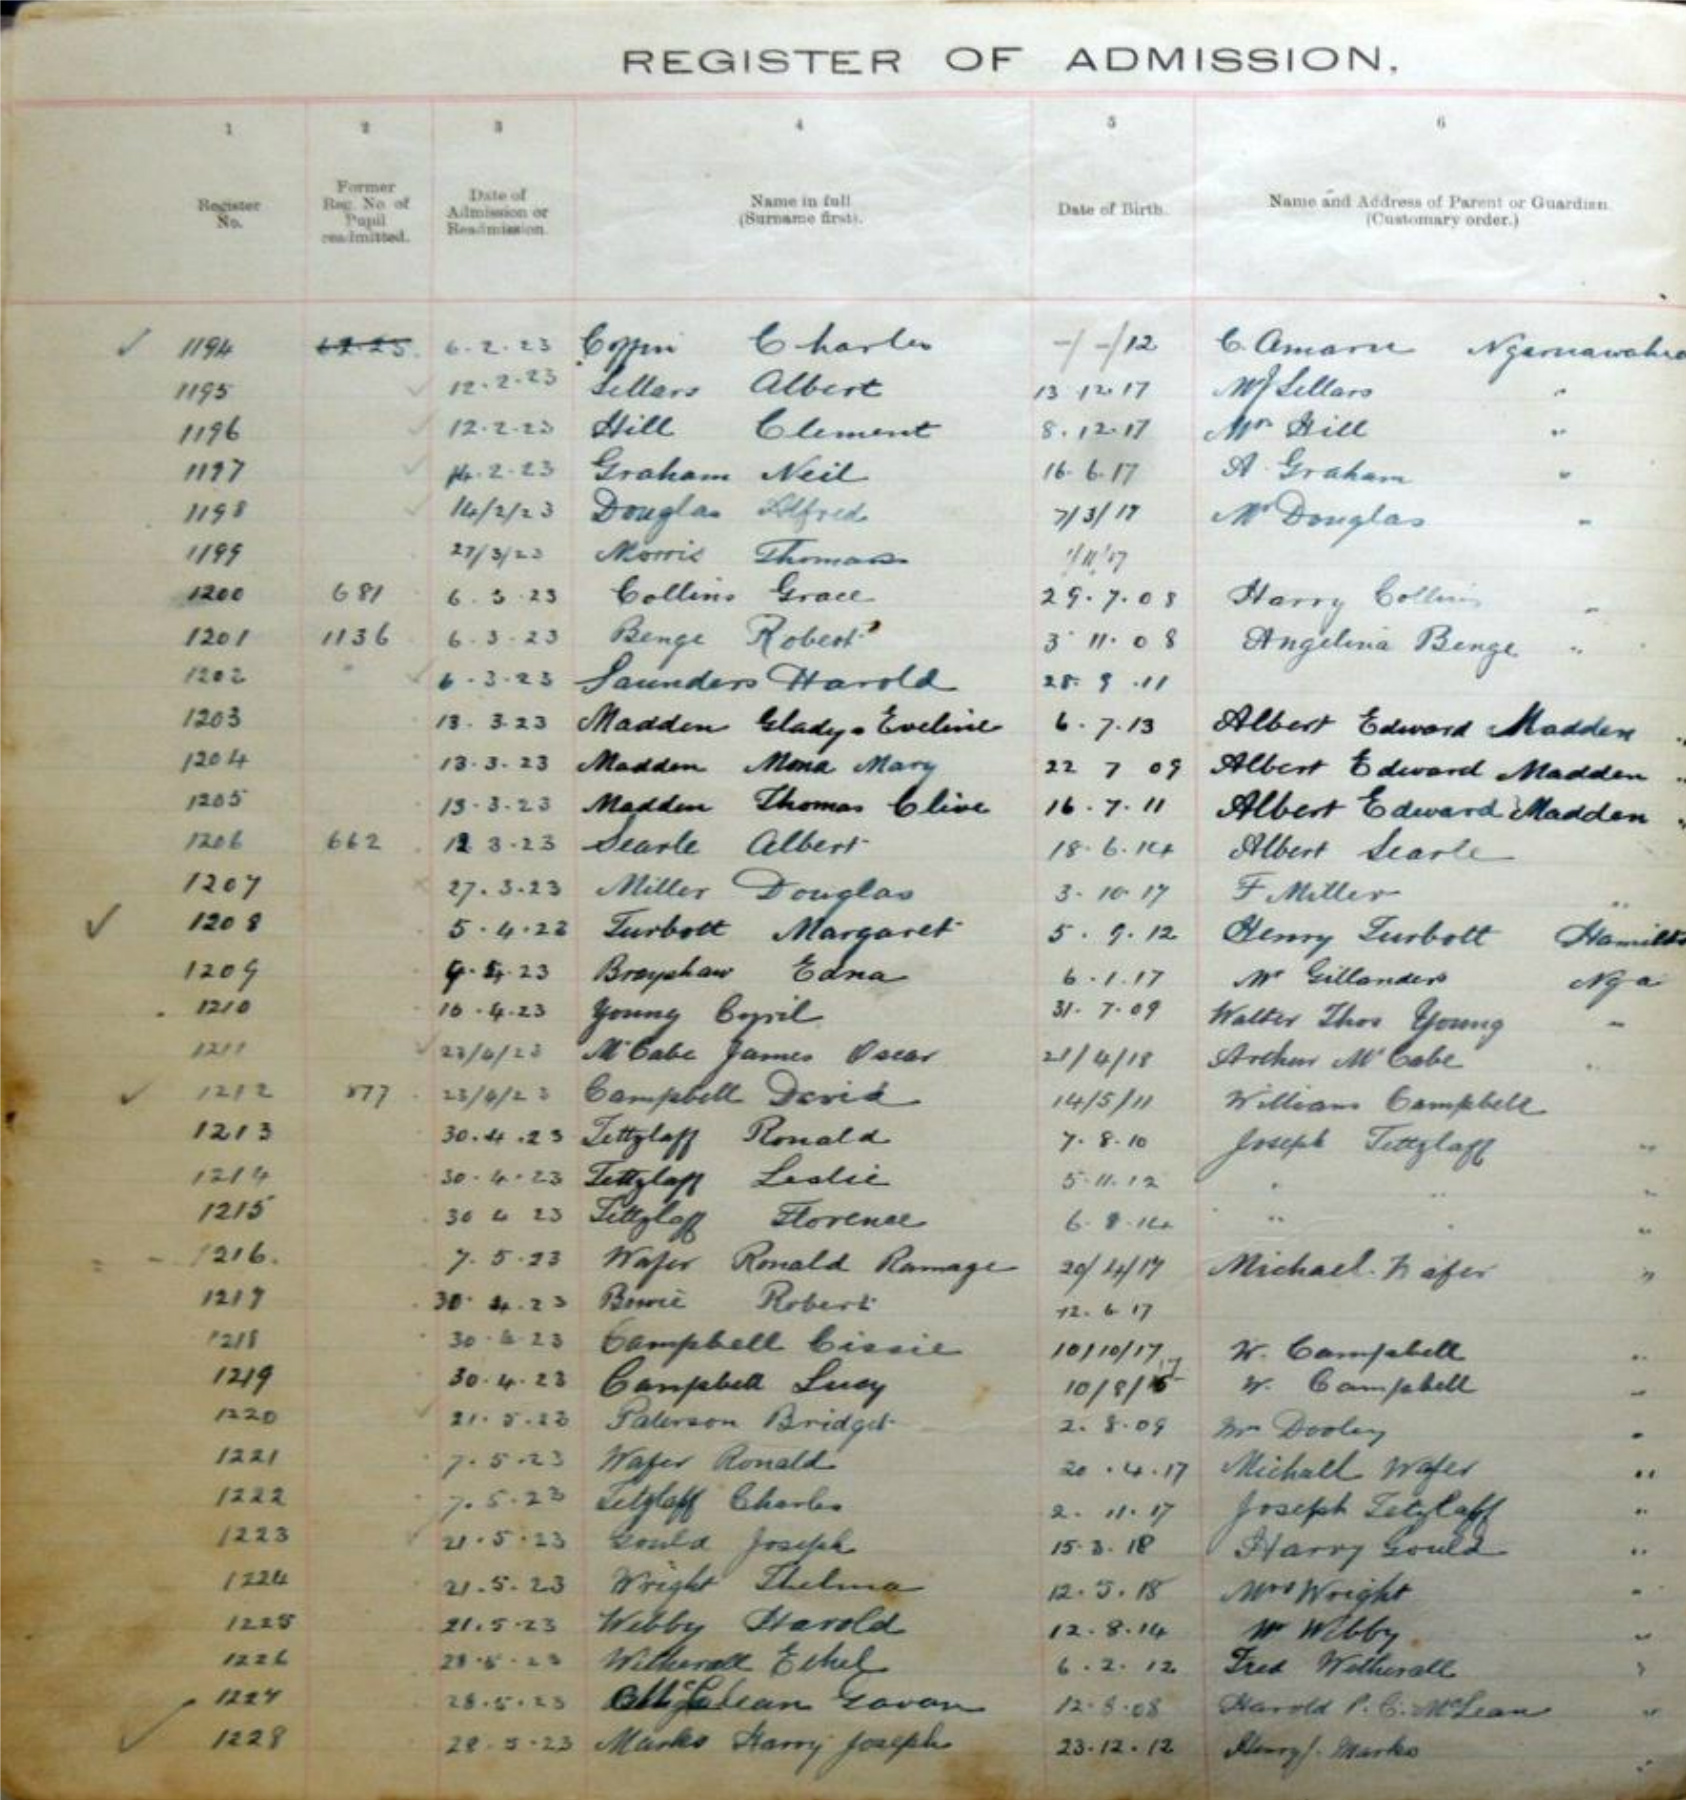 REGISTER OF ADMISSION.
1 2 3 4 5 6
Register No. Former Reg. No of Pupil readmitted. Date of Admission or Readmission. Name in full (Surname first). Date of Birth. Name and Address of Parent or Guardian. (Customary order.)
1194 6.2.23 Coffin Charles -/-/12 C. Amaru
1195 12.2.23 Sellars Albert 13.12.17 Sellars "
1196 12.2.23 Hill Clement 8.12.17 Mr Hill "
1197 14.2.23 Graham Neil 16.6.17 A. Graham "
1198 14/2/23 Douglas Alfred 7/3/17 Mr Douglas "
1199 27/3/23 Morris Thomas 1/11/17
1200 681 6.3.23 Collins Grace 29.7.08 Harry Collins "
1201 1136 6.3.23 Benge Robert 3.11.08 Angelina Benge "
1202 6.3.23 Saunders Harold 28.9.11
1203 13.3.23 Madden Gladys Eveline 6.7.13 Albert Edward Madden "
1204 13.3.23 Madden Mona Mary 22 7 09 Albert Edward Madden "
1205 13.3.23 Madden Thomas Clive 16.7.11 Albert Edward Madden "
1206 662 3.23 Searle Albert 18.6.14 Albert Searle
1207 27.3.23 Miller Douglas 3.10.17 F Miller "
1208 5.4.23 Turbott Margaret 5.9.12 Henry Turbott
1209 9.4.23 Brayshaw Edna 6.1.17 Mr Gillanders Nga
1210 16.4.23 Young Cyril 31.7.09 Walter Thos Young "
1211 23/4/23 McCabe James Oscar 21/4/18 Arthur McCabe "
1212 877 23/4/23 Campbell David 14/5/11 William Campbell
1213 30.4.23 Tettzlaff Ronald 7.8.10 Joseph Tettzlaff "
1214 30.4.23 Tettzlaff Leslie 5.11.12 " " "
1215 30 4 23 Tettzlaff Florence 6.8.14 " " "
1216. 7.5.23 Wafer Ronald Ramage 20/4/17 Michael Wafer "
1217 30.4.23 Bowie Robert 12.6.17
1218 30.4.23 Campbell Cissie 10/10/17 W. Campbell "
1219 30.4.23 Campbell Lucy 10/8/15 W. Campbell "
1220 21.5.23 Paterson Bridget 2.8.09 Mr Dooley "
1221 7.5.23 Wafer Ronald 20.4.17 Michall Wafer "
1222 7.5.23 Tetzlaff Charles 2.11.17 Joseph Tetzlaff "
1223 21.5.23 Gould Joseph 15.3.18 Harry Gould "
1224 21.5.23 Wright Thelma 12.5.18 Mrs Wright "
1225 21.5.23 Webby Harold 12.8.14 Mr Webby "
1226 28.5.23 Witherall Ethel 6.2.12 Fred Witherall "
1227 28.5.23 McLean Gavan 12.8.08 Harold P. C. McLean "
1228 28.5.23 Marks Harry Joseph 23.12.12 Henry J. Marks "